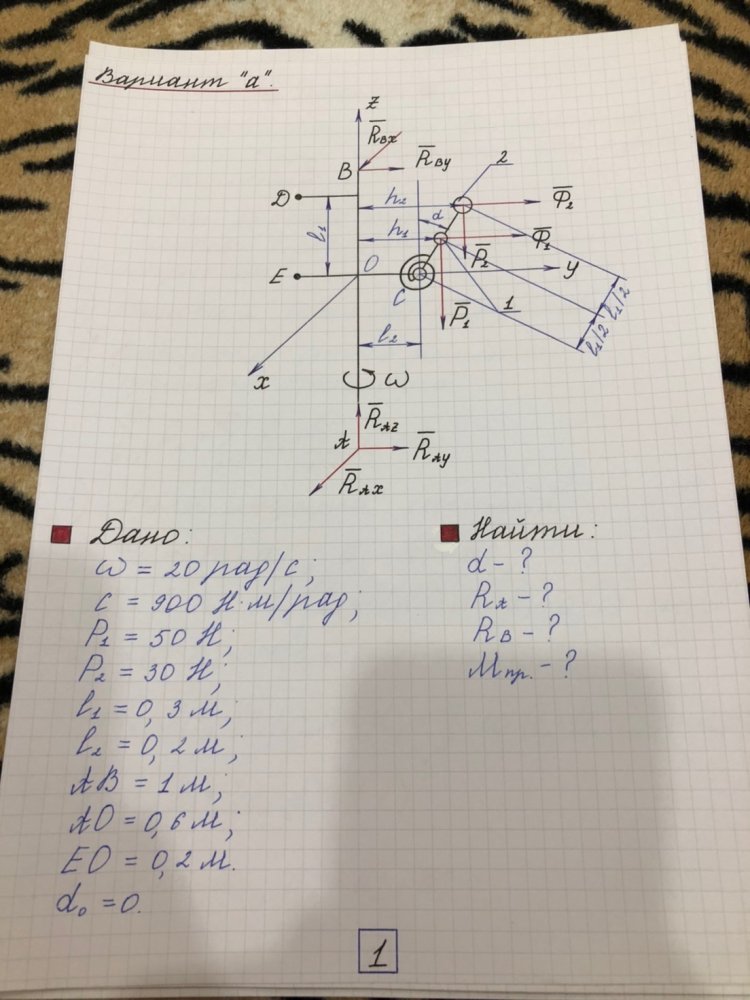 Вариант "а".
z
R̅вx
B
R̅вy
2
D
h₂
d
Φ̅₂
l₁
h₁
Φ̅₁
P̅₂
O
y
E
C
P̅₁
1
l₁/2
l₁/2
l₂
x
ω
R̅Az
A
R̅Ay
R̅Ax
Дано:
ω = 20 рад/с;
c = 900 Н·м/рад;
P₁ = 50 Н;
P₂ = 30 Н;
l₁ = 0,3 м;
l₂ = 0,2 м;
AB = 1 м;
AO = 0,6 м;
EO = 0,2 м.
d₀ = 0.
Найти:
d - ?
RA - ?
RB - ?
Mпр. - ?
1